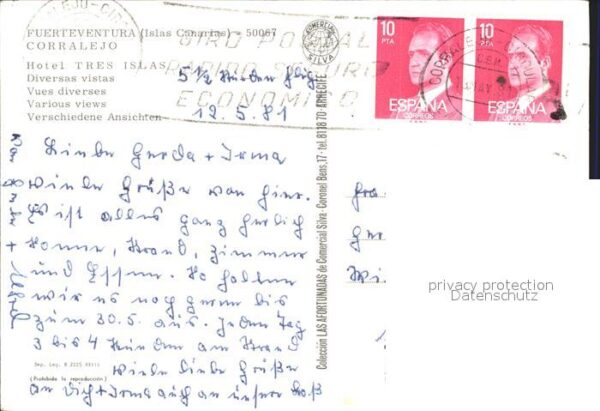 FUERTEVENTURA (Islas Canarias) - 50067
CORRALEJO
Hotel TRES ISLAS
Diversas vistas
Vues diverses
Various views
Verschiedene Ansichten
5 1/2 Stunden Flug
12.5.81
Liebe Gerda + Irma
Viele Grüße von hier.
Es ist alles ganz herlich
Sonne, Strand, Zimmer
und Essen. So halten
wir es noch gerne bis
zum 30.5. aus. Jeden Tag
3 bis 4 Stunden am Strand
Viele liebe Grüße
an Dich + Irma auch an unsere
Dep. Leg. B
(Prohibida la reproducción)
GIRO POSTAL
RAPIDO SEGURO
ECONOMICO
COMERCIAL
SILVA
Colección LAS AFORTUNADAS de Comercial Silva - Coronel Bens, 17 - tel. 811870 ARRECIFE
10
PTA
ESPAÑA
CORREOS
10
PTA
ESPAÑA
CORREOS
privacy protection
Datenschutz